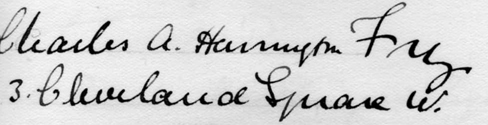 Charles A. Harrington Fry
3. Cleveland Square W.